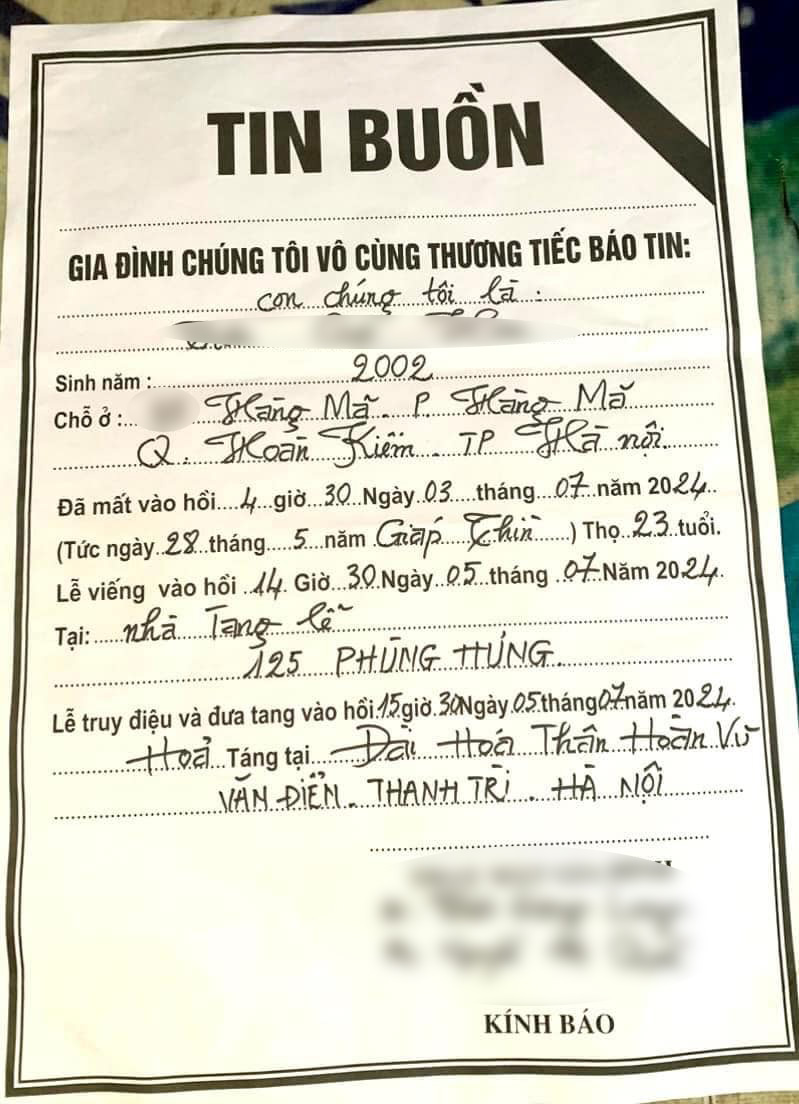 TIN BUỒN
GIA ĐÌNH CHÚNG TÔI VÔ CÙNG THƯƠNG TIẾC BÁO TIN:
con chúng tôi là :
Sinh năm : 2002
Chỗ ở : Hàng Mã. P. Hàng Mã
Q. Hoàn Kiếm. TP Hà nội.
Đã mất vào hồi 4 giờ 30 Ngày 03 tháng 07 năm 2024
(Tức ngày 28 tháng 5 năm Giáp Thìn ) Thọ 23 tuổi.
Lễ viếng vào hồi 14 Giờ 30 Ngày 05 tháng 07 Năm 2024
Tại: nhà Tang lễ
125 PHÙNG HƯNG.
Lễ truy điệu và đưa tang vào hồi 15 giờ 30 Ngày 05 tháng 07 năm 2024
Hoả Táng tại Đài Hoá Thân Hoàn Vũ
VĂN ĐIỂN. THANH TRÌ. HÀ NỘI
KÍNH BÁO